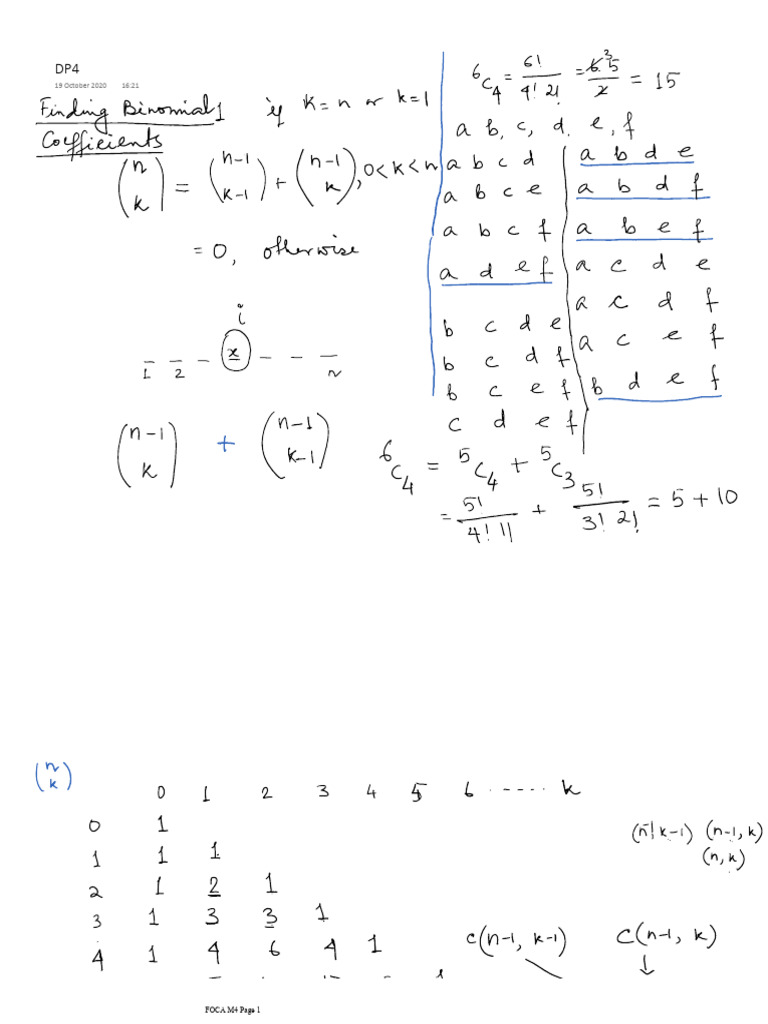 DP4
19 October 2020 16:21
Finding Binomial 1 if K = n or k = 1
Coefficients
(n k) = (n-1 k-1) + (n-1 k), 0 < k < n
= 0, otherwise
i
_ _ _ x _ _ _
1 2 n
(n-1 k) + (n-1 k-1)
6C4 = 6!/4! 2! = 6.5/2 3 = 15
a b, c, d. e, f
a b c d
a b c e
a b c f
a d e f
b c d e
b c d f
b c e f
c d e f
a b d e
a b d f
a b e f
a c d e
a c d f
a c e f
b d e f
6C4 = 5C4 + 5C3
= 5!/4! 1! + 5!/3! 2! = 5 + 10
(n k)
0 1 2 3 4 5 6 ...... k
0 1
1 1 1
2 1 2 1
3 1 3 3 1
4 1 4 6 4 1
(n-1, k-1) (n-1, k)
(n, k)
c(n-1, k-1) C(n-1, k)
↓
FOCA M4 Page 1